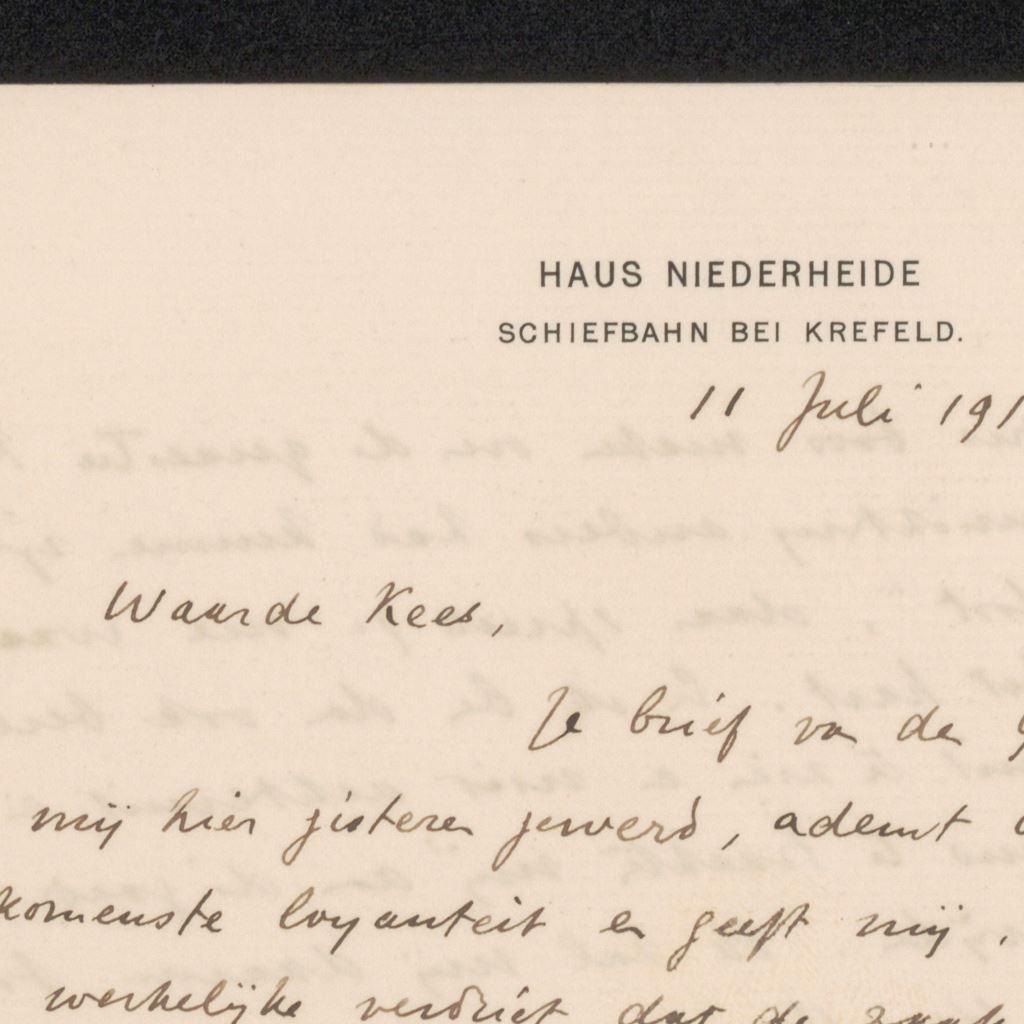 HAUS NIEDERHEIDE
SCHIEFBAHN BEI KREFELD.
11 Juli 191
Waarde Kees,
Je brief van de
mij hier gisteren gewerd, ademt
komenste loyauteit en geeft mij
werkelijke verdriet dat de zaak